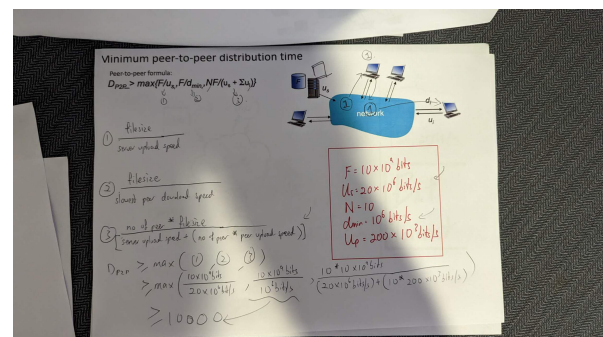 Minimum peer-to-peer distribution time
Peer-to-peer formula:
D_P2P > max{F/u_s, F/d_min, NF/(u_s + Σu_i)}
① ② ③
③
u_s
② ①
network
d_i
u_i
① filesize
server upload speed
② filesize
slowest peer download speed
③ [no of peer * filesize
server upload speed + (no of peer * peer upload speed)]
F = 10 × 10⁹ bits
Us = 20 × 10⁶ bits/s
N = 10
dmin = 10⁶ bits/s
Up = 200 × 10³ bits/s
D_P2P ≥ max (①, ②, ③)
≥ max (10×10⁹ bits / 20×10⁶ bit/s, 10×10⁹ bits / 10⁶ bit/s, 10 * 10×10⁹ bits / (20×10⁶ bits/s) + (10 * 200×10³ bits/s))
≥ 10000